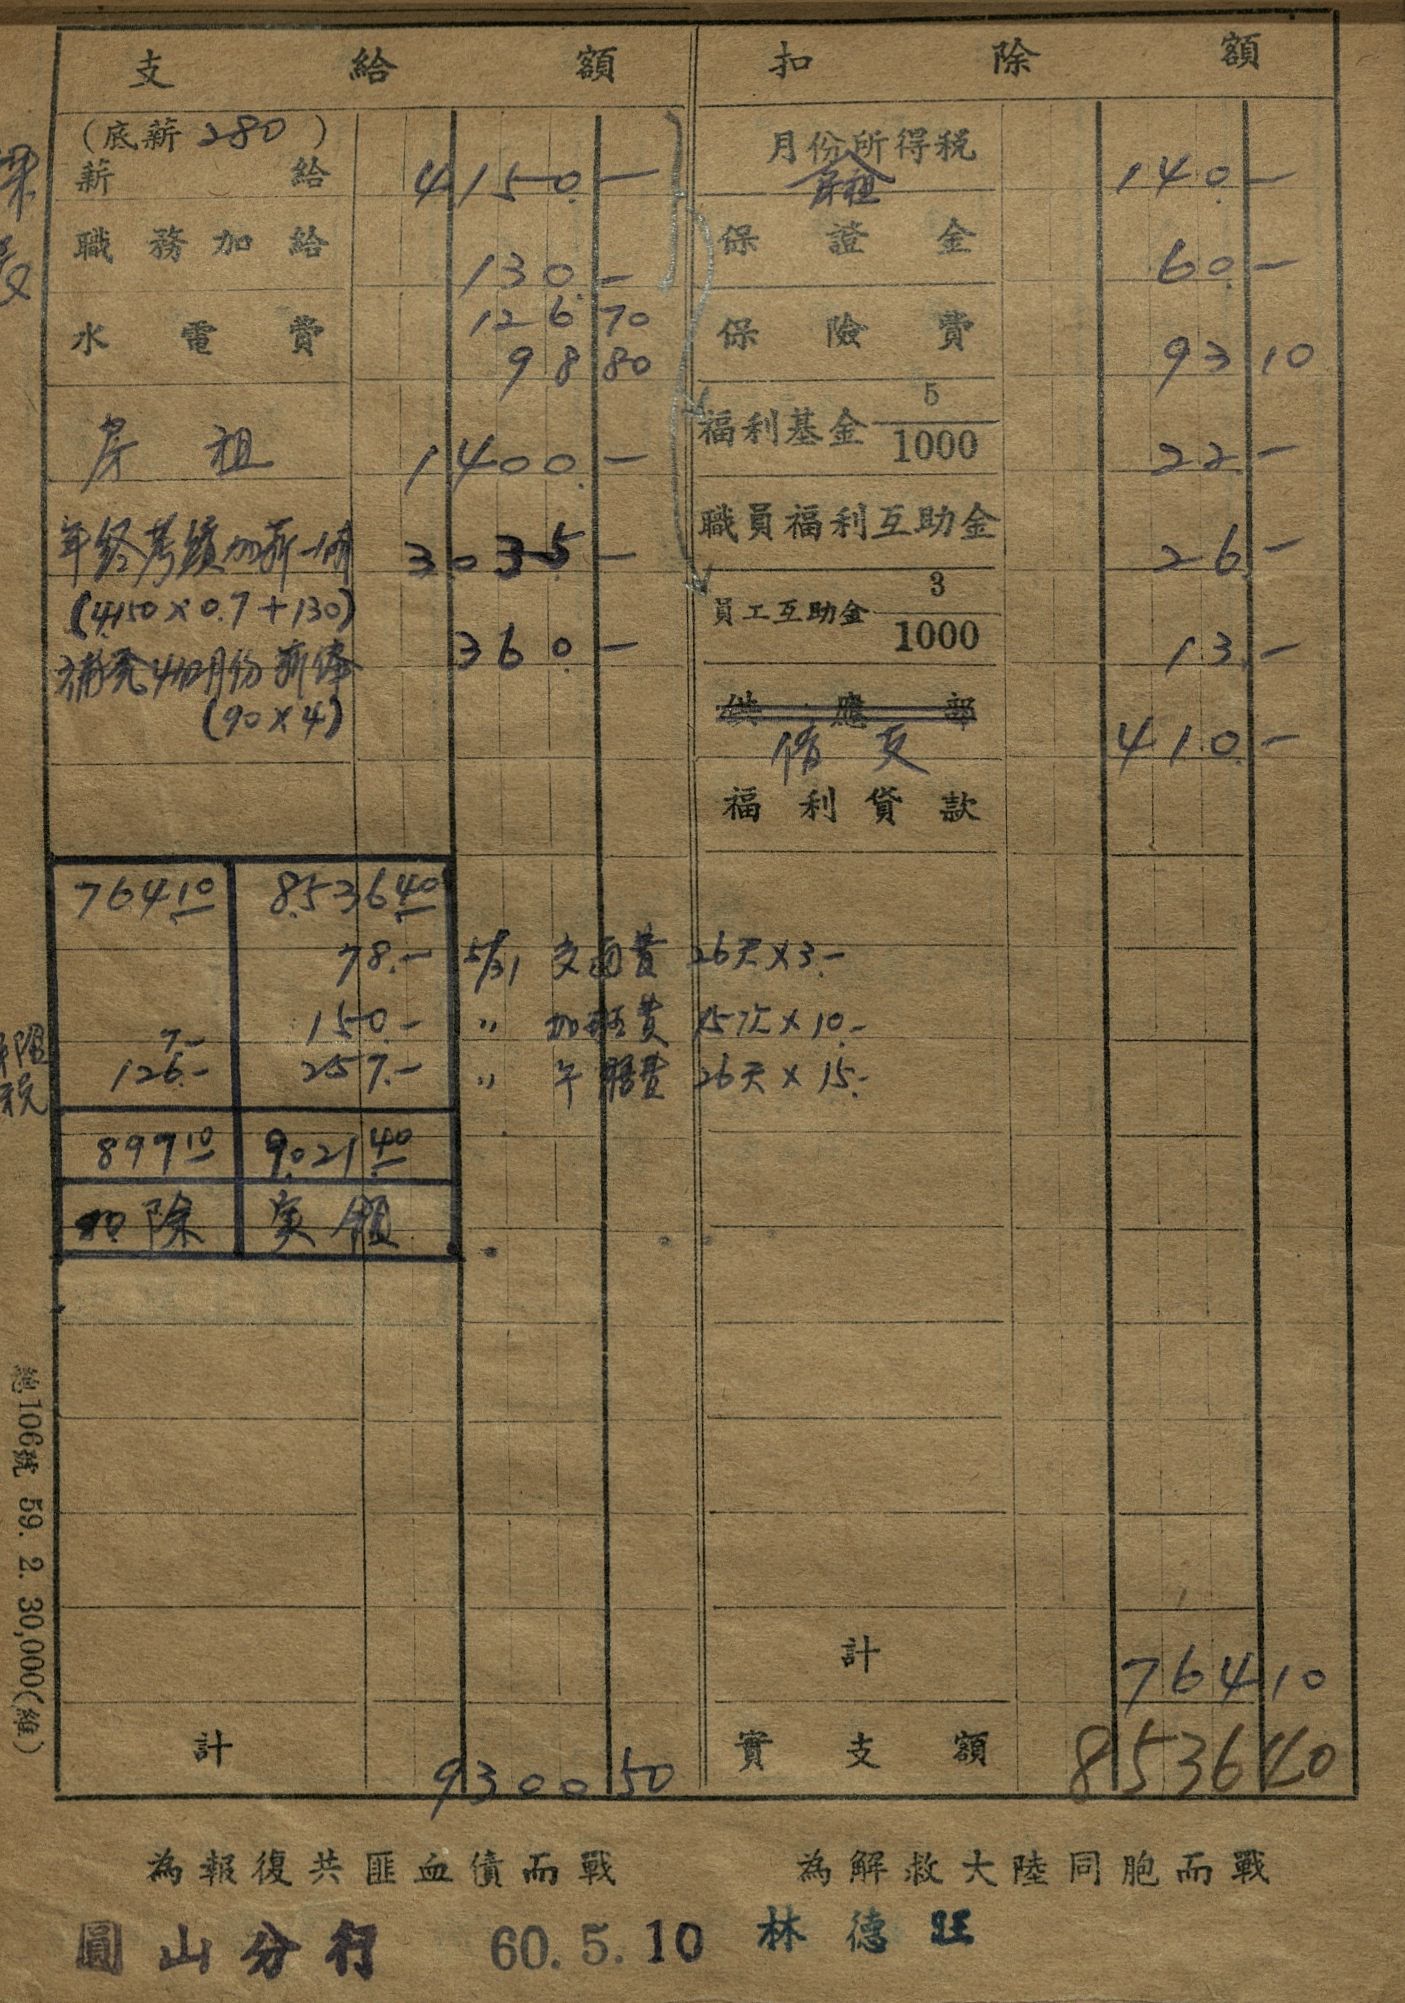 支給額
扣除額
(底薪280)
薪給 4150.-
職務加給 130.-
水電費 126 70
98 80
房租 1400.-
年終考績加薪一個
3035.-
(4150×0.7+130)
補發 月份薪俸 360.-
(90×4)
月份所得稅
房租 140.-
保證金 60.-
保險費 93 10
福利基金 5/1000 22.-
職員福利互助金 26.-
員工互助金 3/1000 13.-
供應部
借支 410.-
福利貸款
764 10 8,536 40
78.- 5/31 交通費 26天×3.-
7.- 150.- 〃 加班費 15次×10.-
126.- 257.- 〃 午膳費 26天×15.-
899 10 9,021 40
扣除 实領
計 9300 50
計 764 10
實支額 8536 40
總106號 59. 2. 30,000(維)
為報復共匪血債而戰
為解救大陸同胞而戰
圓山分行 60. 5. 10 林德旺